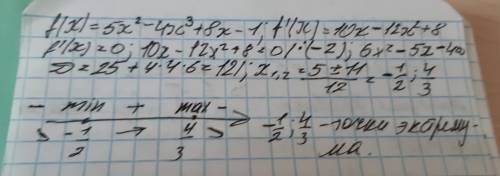 f(x)=5x²-4x³+8x-1; f'(x)=10x-12x²+8
f'(x)=0; 10x-12x²+8=0 /:(-2); 6x²-5x-4=0
D=25+4·4·6=121; x₁,₂=(5±11)/12=-1/2; 4/3
- min + max -
-1/2 → 4/3 -1/2; 4/3 - точки экстрему-
ма.